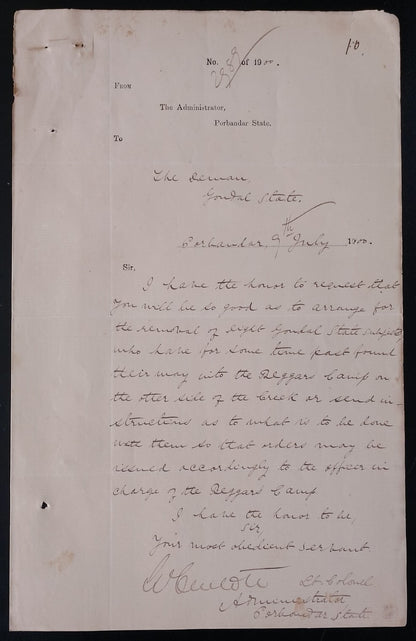 10.
No. of 1900.
From
The Administrator,
Porbandar State.
To
The Dewan,
Gondal State.
Porbandar, 9th July 1900.
Sir,
I have the honor to request that
you will be so good as to arrange for
the removal of eight Gondal State subjects
who have for some time past found
their way into the Beggars Camp on
the other side of the Creek or send in-
structions as to what is to be done
with them so that orders may be
issued accordingly to the officer in
charge of the Beggars Camp
I have the honor to be,
Sir,
Your most obedient servant
Lt. Colonel
Administrator
Porbandar State.